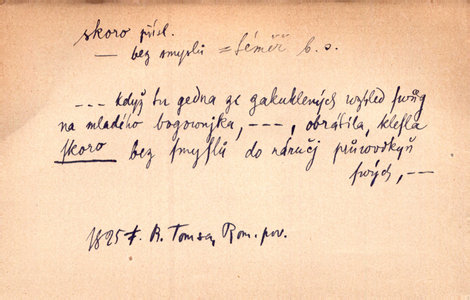 skoro přísl.
— bez smyslů = téměř b. s.
--- když tu gedna ze zakuklených wzhled swůg
na mladého bogownjka, ---, obrátila, klesla
skoro bez smyslů do náručj průwodkyň
swých, --
1825 F. B. Tomsa, Rom. pov.